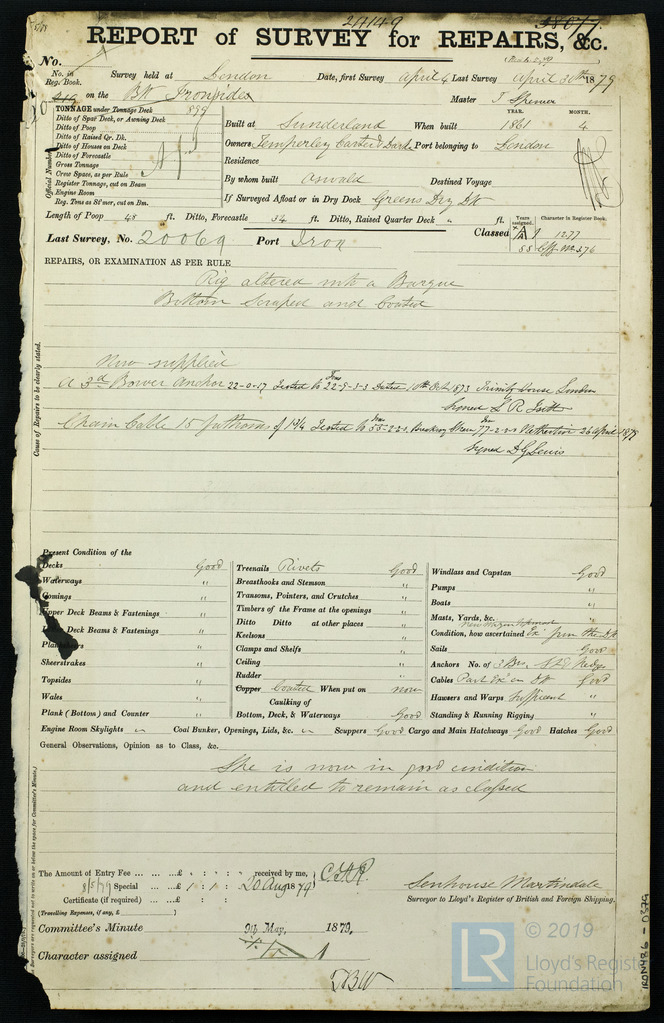 24149
REPORT of SURVEY for REPAIRS, &c.
No.
No. in Reg. Book.
Survey held at London Date, first Survey April 4 Last Survey April 30th 1879
on the Bk Ironsides Master T Spencer
TONNAGE under Tonnage Deck 899
Ditto of Spar Deck, or Awning Deck
Ditto of Poop
Ditto of Raised Qr. Dk.
Ditto of Houses on Deck
Ditto of Forecastle
Gross Tonnage
Crew Space, as per Rule
Register Tonnage, cut on Beam
Engine Room
Reg. Tons as St'mer, cut on Bm.
Official Number
YEAR. MONTH.
Built at Sunderland When built 1861 4
Owners Temperley Carter & Darke Port belonging to London
Residence
By whom built Oswald Destined Voyage
If Surveyed Afloat or in Dry Dock Greens Dry Dk
Length of Poop 48 ft. Ditto, Forecastle 34 ft. Ditto, Raised Quarter Deck " ft.
Years assigned. Character in Register Book.
Last Survey, No. 20069 Port Iron Classed A 1 12.77
REPAIRS, OR EXAMINATION AS PER RULE
Cause of Repairs to be clearly stated.
Rig altered into a Barque
Bottom Scraped and Coated
Now supplied
A 3rd Bower Anchor 22-0-17 Tested to 22-5-3-3 Dated 10th Oct 1873 Trinity House London
Chain Cable 15 fathoms of 1 14/16 Tested to 55-2-2-0, Breaking Strain 77-2-0-0 Netherton 26 April 1877
Signed D G Lewis
Present Condition of the
Decks Good
Waterways "
Comings "
Upper Deck Beams & Fastenings "
Deck Beams & Fastenings "
Plank
Sheerstrakes "
Topsides "
Wales "
Plank (Bottom) and Counter "
Treenails Rivets Good
Breasthooks and Stemson "
Transoms, Pointers, and Crutches "
Timbers of the Frame at the openings "
Ditto Ditto at other places "
Keelsons "
Clamps and Shelfs "
Ceiling "
Rudder "
Copper Coated When put on now
Caulking of
Bottom, Deck, & Waterways Good
Windlass and Capstan Good
Pumps "
Boats "
Masts, Yards, &c.
Condition, how ascertained Exd from the Dk
Sails Good
Anchors No. of 3 Brs, St & Kedge
Cables Part Exd on Dk Good
Hawsers and Warps Sufficient "
Standing & Running Rigging "
Engine Room Skylights " Coal Bunker, Openings, Lids, &c. " Scuppers Good Cargo and Main Hatchways Good Hatches Good
General Observations, Opinion as to Class, &c.
She is now in good condition
and entitled to remain as classed
The Amount of Entry Fee ... ... ... £ : : received by me,
8/5/79 Special ... £ 1 : 1 : 20 Aug 1879
Certificate (if required) ... £ : :
(Travelling Expenses, if any, £ )
Senhouse Martindale
Surveyor to Lloyd's Register of British and Foreign Shipping.
Committee's Minute 9th May, 1879.
Character assigned
IRON486-0379
LR
© 2019
Lloyd's Register
Foundation